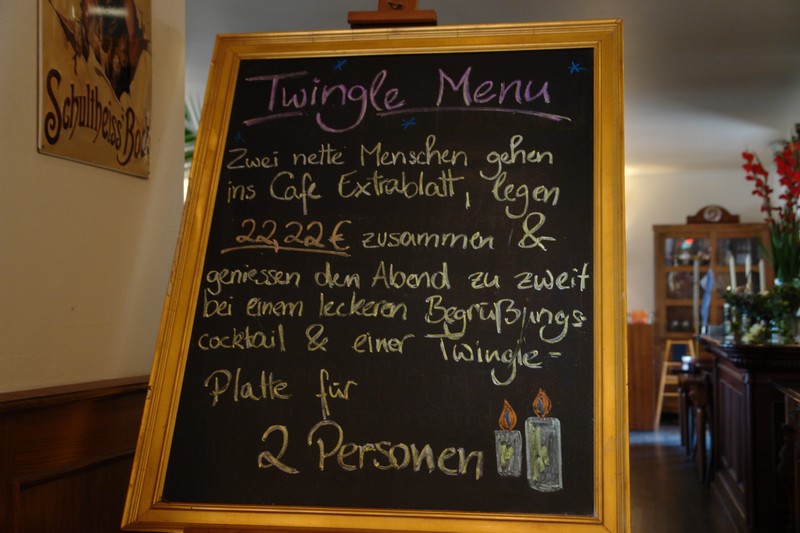 Schultheiss' Bock
Twingle Menu
Zwei nette Menschen gehen
ins Cafe Extrablatt, legen
22,22 € zusammen &
geniessen den Abend zu zweit
bei einem leckeren Begrüßungs-
cocktail & einer Twingle-
Platte für
2 Personen